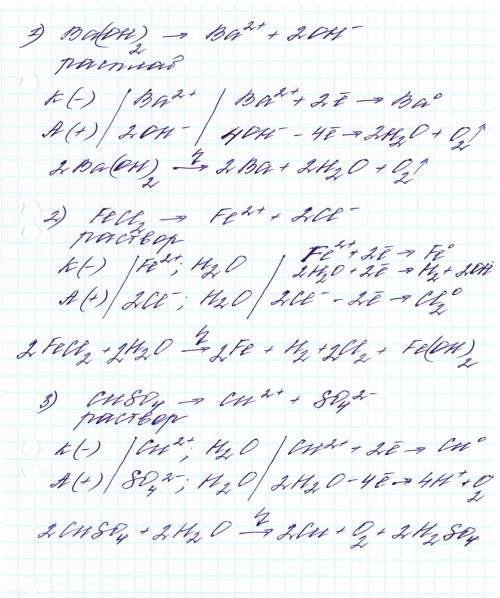 1) Ba(OH)₂ → Ba²⁺ + 2OH⁻
расплав
К(-) | Ba²⁺ | Ba²⁺ + 2ē → Ba⁰
А(+) | 2OH⁻ | 4OH⁻ - 4ē → 2H₂O + O₂↑
2Ba(OH)₂ →(эл) 2Ba + 2H₂O + O₂↑
2) FeCl₂ → Fe²⁺ + 2Cl⁻
раствор
Fe²⁺ + 2ē → Fe⁰
К(-) | Fe²⁺; H₂O | 2H₂O + 2ē → H₂ + 2OH⁻
А(+) | 2Cl⁻; H₂O | 2Cl⁻ - 2ē → Cl₂⁰
2FeCl₂ + 2H₂O → 2Fe + H₂ + 2Cl₂ + Fe(OH)₂
3) CuSO₄ → Cu²⁺ + SO₄²⁻
раствор
К(-) | Cu²⁺; H₂O | Cu²⁺ + 2ē → Cu⁰
А(+) | SO₄²⁻; H₂O | 2H₂O - 4ē → 4H⁺ + O₂
2CuSO₄ + 2H₂O → 2Cu + O₂ + 2H₂SO₄